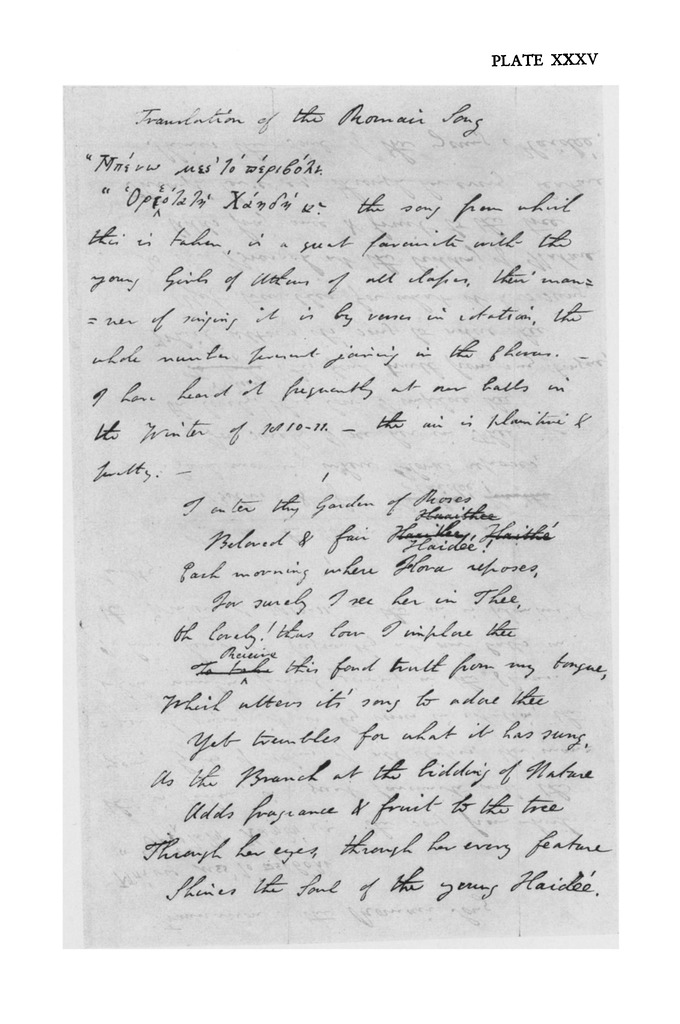 PLATE XXXV
Translation of the Romaic Song
"Μπένω μες' τὸ πέριβόλι
"Ὀρεότατὴ Χάηδή &c. the song from which
this is taken, is a great favourite with the
young Girls of Athens of all classes, their man=
=ner of singing it is by verses in rotation, the
whole number present joining in the Chorus. —
I have heard it frequently at our balls in
the Winter of 1810-11. — the air is plaintive &
pretty. —
I enter thy Garden of Roses
Beloved & fair Haidee!
Each morning where Flora reposes,
For surely I see her in Thee,
Oh lovely! thus low I implore thee
Receive
To take this fond truth from my tongue,
Which utters it's song to adore thee
Yet trembles for what it has sung,
As the Branch at the bidding of Nature
Adds fragrance & fruit to the tree
Through her eyes, through her every feature
Shines the Soul of the young Haideé.